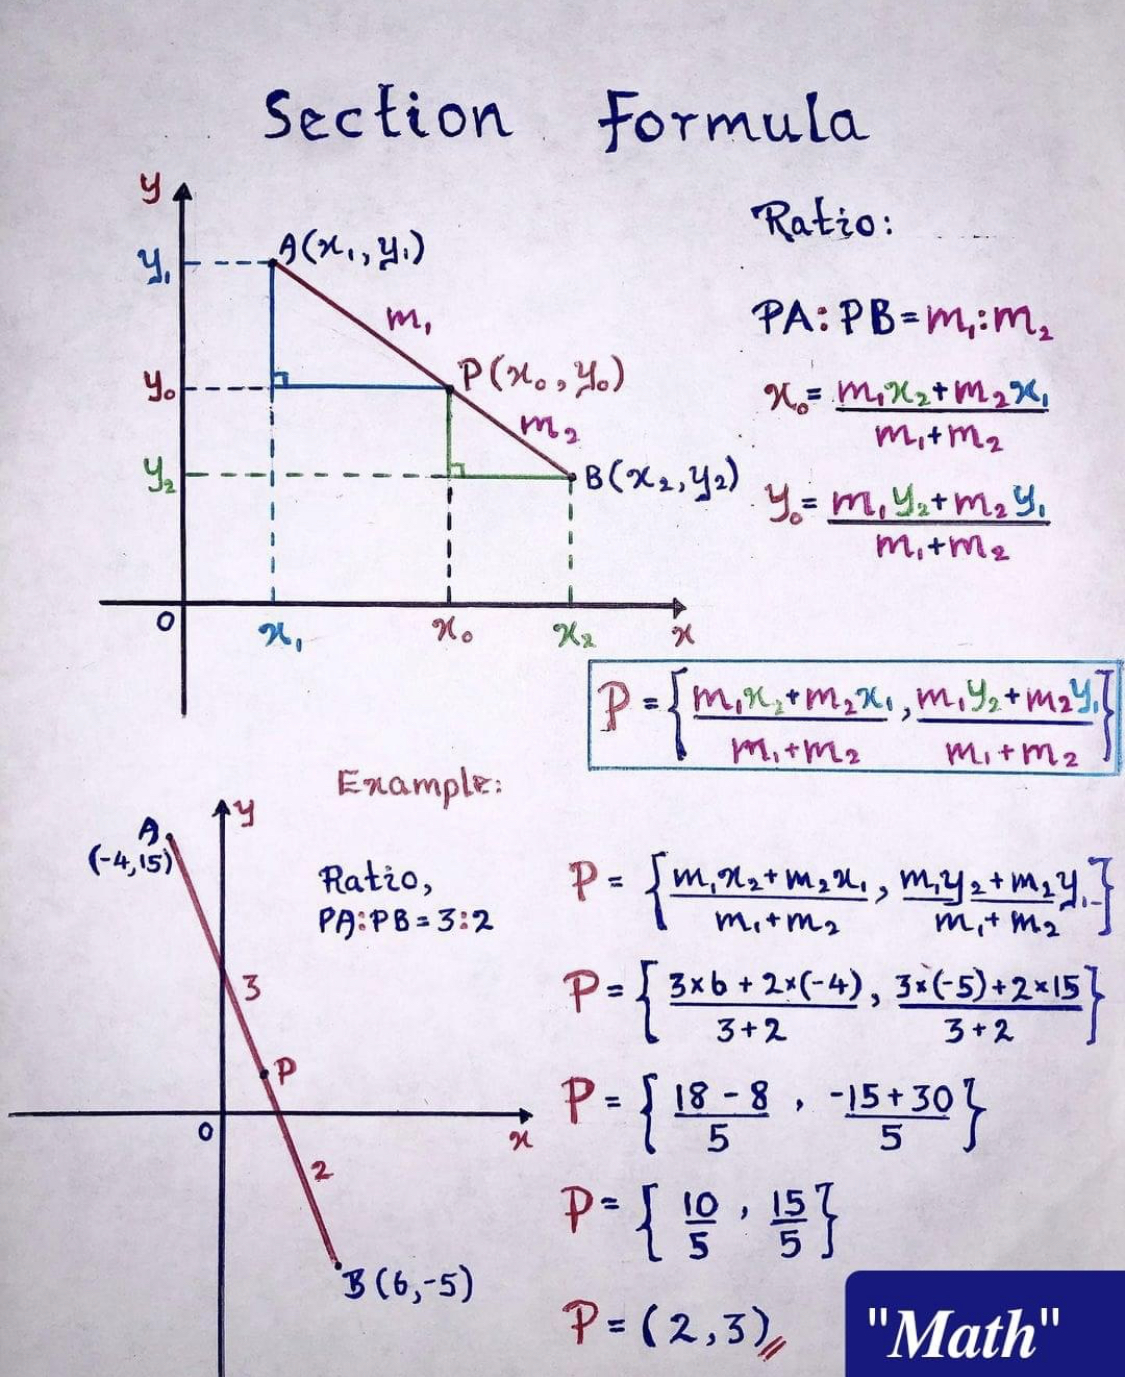 Section Formula
y
y₁
A(x₁, y₁)
m₁
y₀
P(x₀, y₀)
m₂
y₂
B(x₂, y₂)
O
x₁
x₀
x₂
x
Ratio:
PA:PB=m₁:m₂
x₀= m₁x₂+m₂x₁
m₁+m₂
y₀= m₁y₂+m₂y₁
m₁+m₂
P={m₁x₂+m₂x₁, m₁y₂+m₂y₁}
m₁+m₂ m₁+m₂
Example:
y
A
(-4,15)
3
P
O
x
2
B(6,-5)
Ratio,
PA:PB=3:2
P= {m₁x₂+m₂x₁, m₁y₂+m₂y₁}
m₁+m₂ m₁+m₂
P={3×6+2×(-4), 3×(-5)+2×15}
3+2 3+2
P={18-8, -15+30}
5 5
P={10, 15}
5 5
P=(2,3)
"Math"